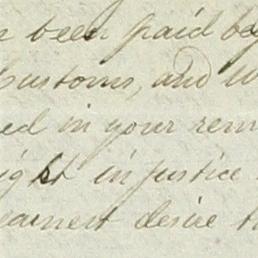 been paid by
Customs, and
ed in your rem
ight injustice
earnest desire th